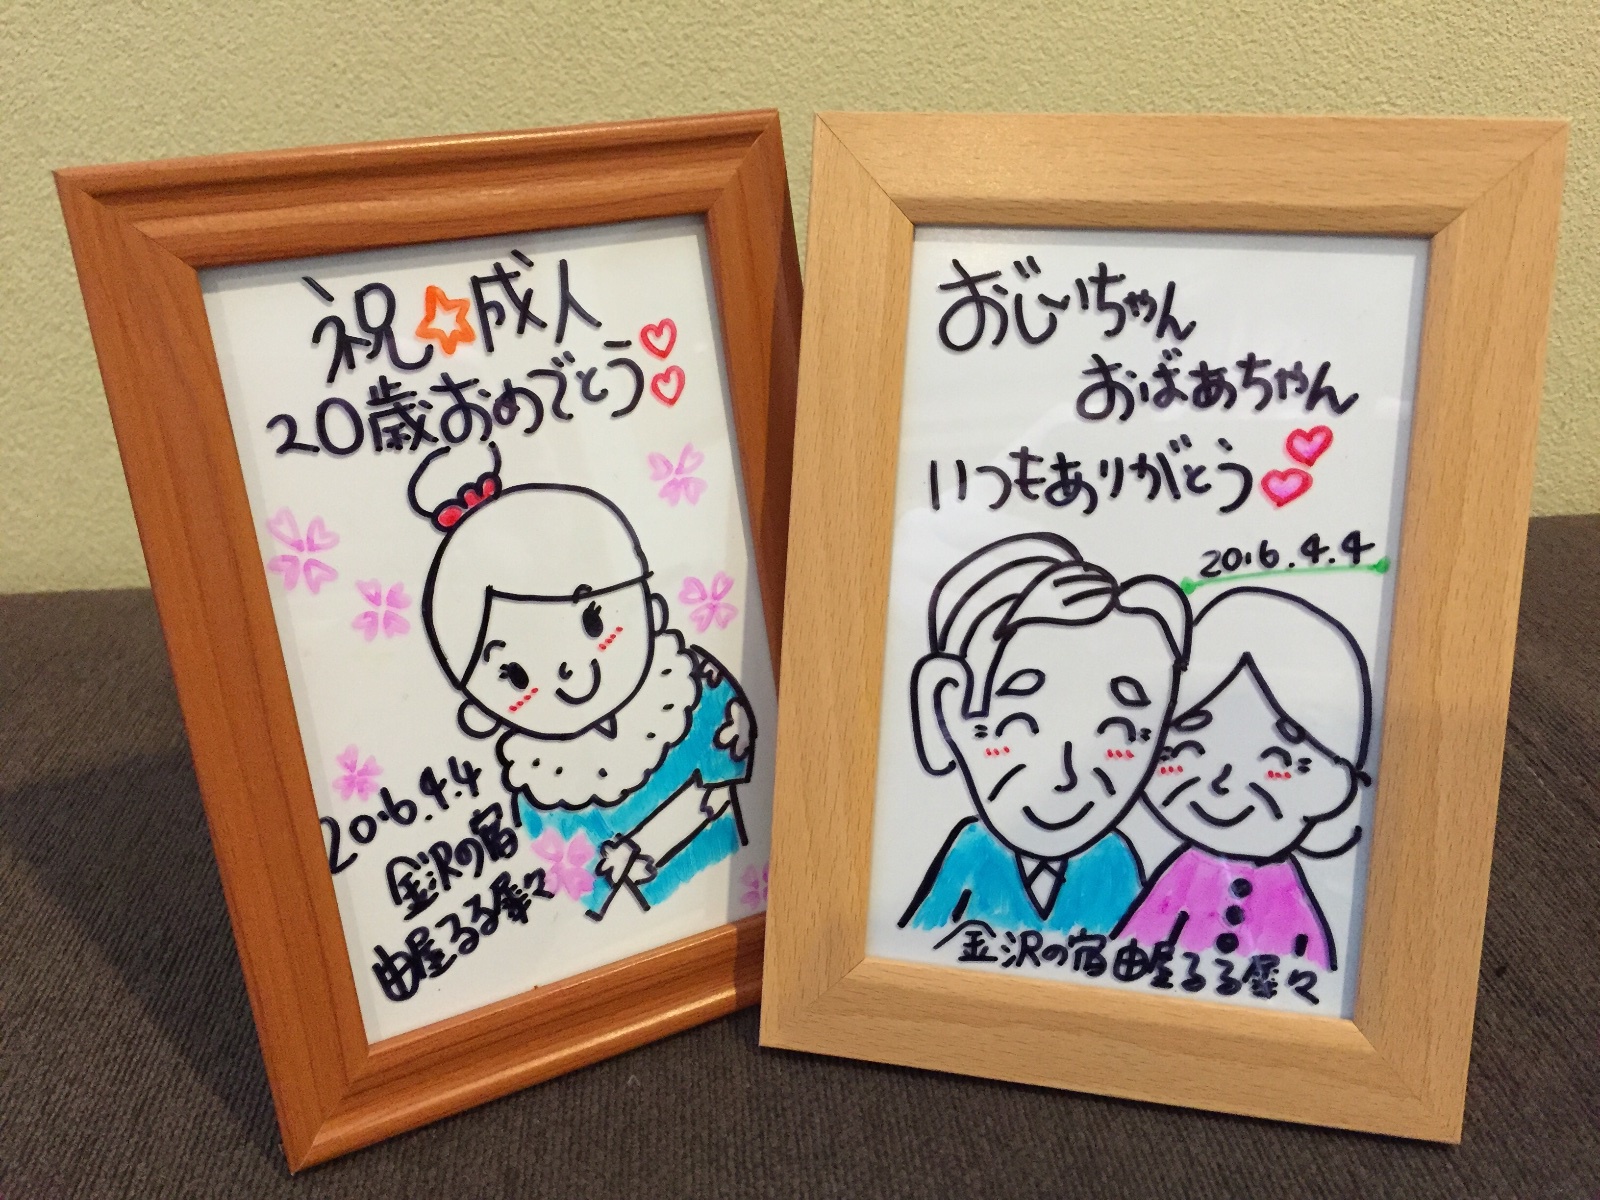 祝☆成人
20歳おめでとう♡♡
2016.4.4
金沢の宿
由屋るる犀々
おじいちゃん
おばあちゃん
いつもありがとう♡♡
2016.4.4
金沢の宿由屋るる犀々